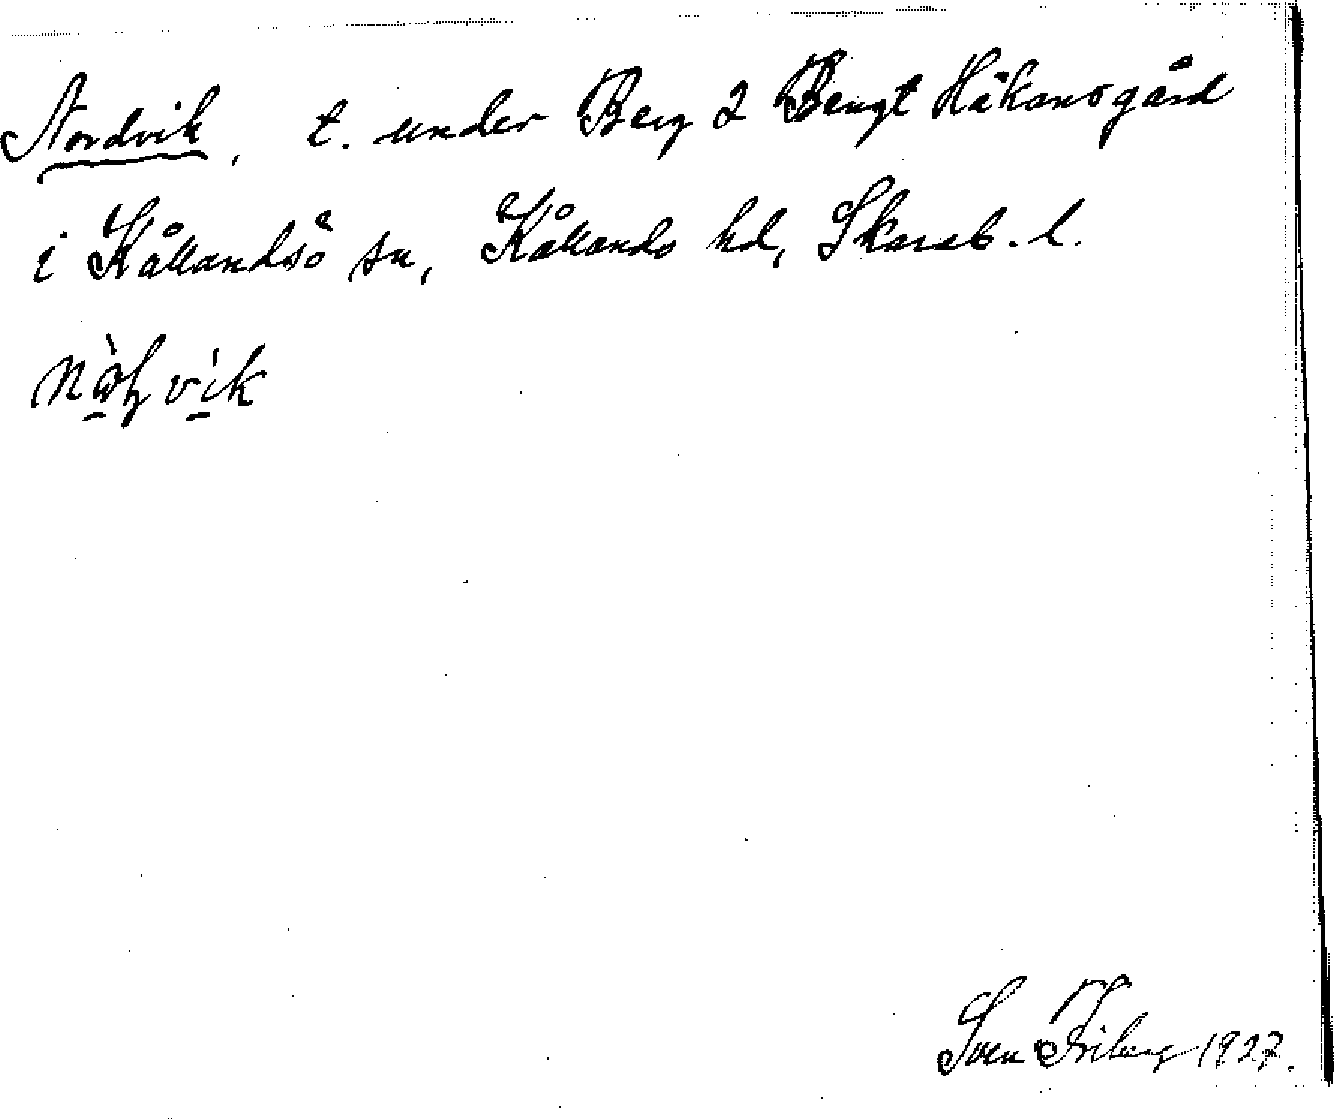 Nordvik, t. under Berg 2 Bengt Håkansgård
i Kållandsö sn, Kållands hd, Skarab. l.
Sven Friberg 1927.